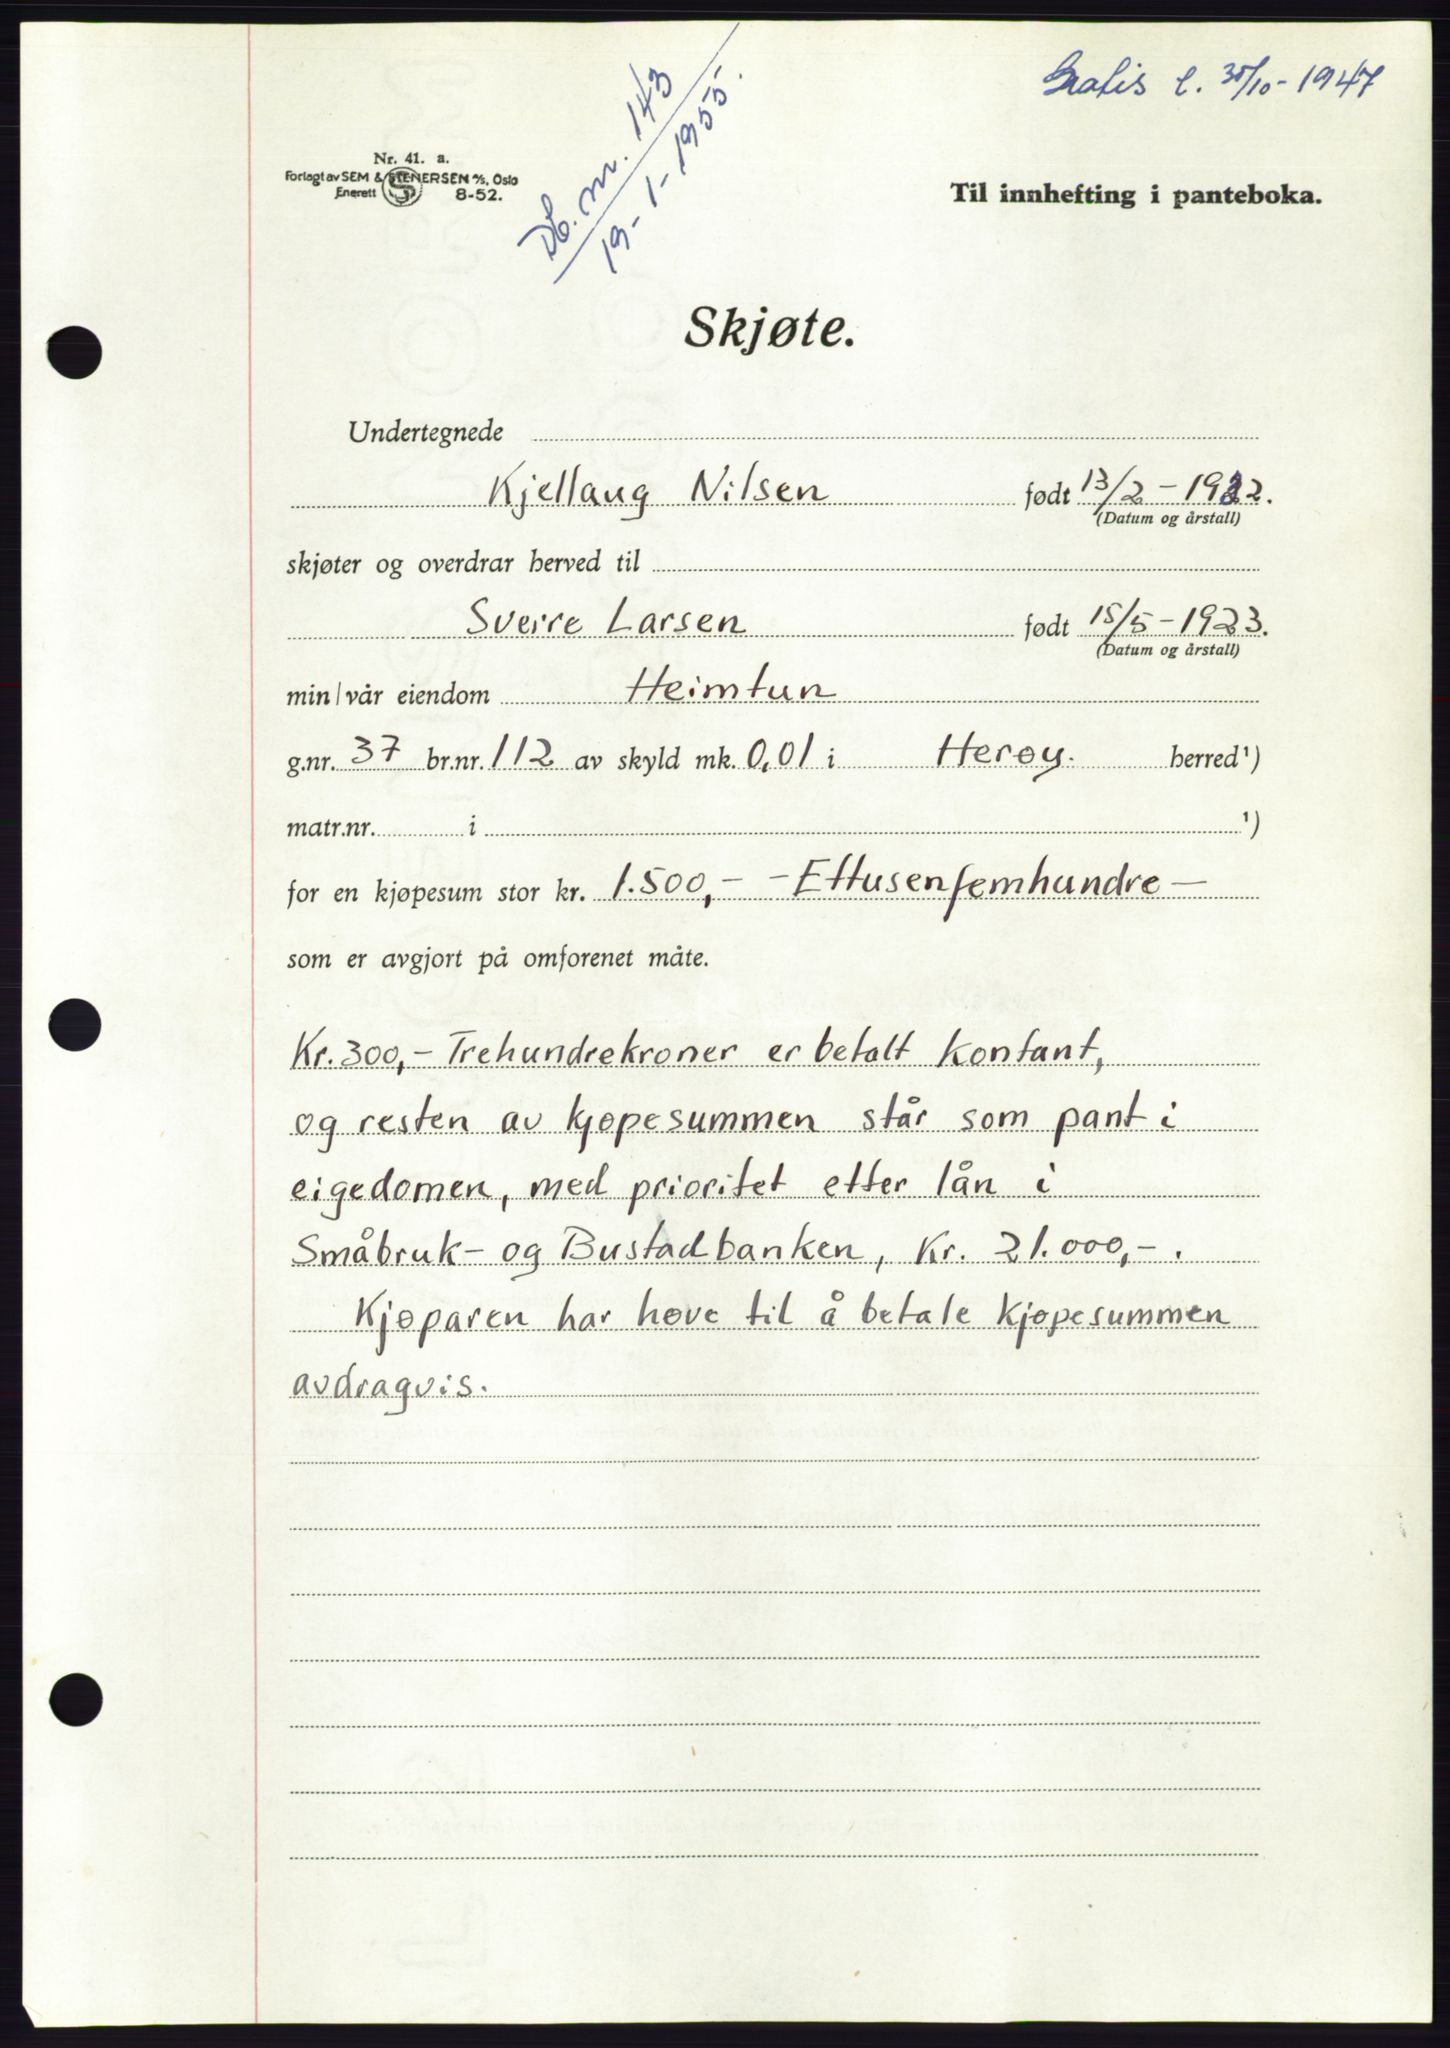 Gratis l. 30/10-1947
Db. nr. 143
19-1-1955.
Nr. 41. a.
Forlagt av SEM & STENERSEN A/S, Oslo
Enerett 8-52.
Til innhefting i panteboka.
Skjøte.
Undertegnede
Kjellaug Nilsen født 13/2-1922.
(Datum og årstall)
skjøter og overdrar herved til
Sverre Larsen født 15/5-1923.
(Datum og årstall)
min/vår eiendom Heimtun
g.nr. 37 br.nr. 112 av skyld mk. 0,01 i Herøy. herred¹)
matr.nr. i ¹)
for en kjøpesum stor kr. 1.500,- - Ettusenfemhundre -
som er avgjort på omforenet måte.
Kr. 300,- Trehundrekroner er betalt kontant,
og resten av kjøpesummen står som pant i
eigedomen, med prioritet etter lån i
Småbruk- og Bustadbanken, Kr. 21.000,-.
Kjøparen har høve til å betale kjøpesummen
avdragvis.